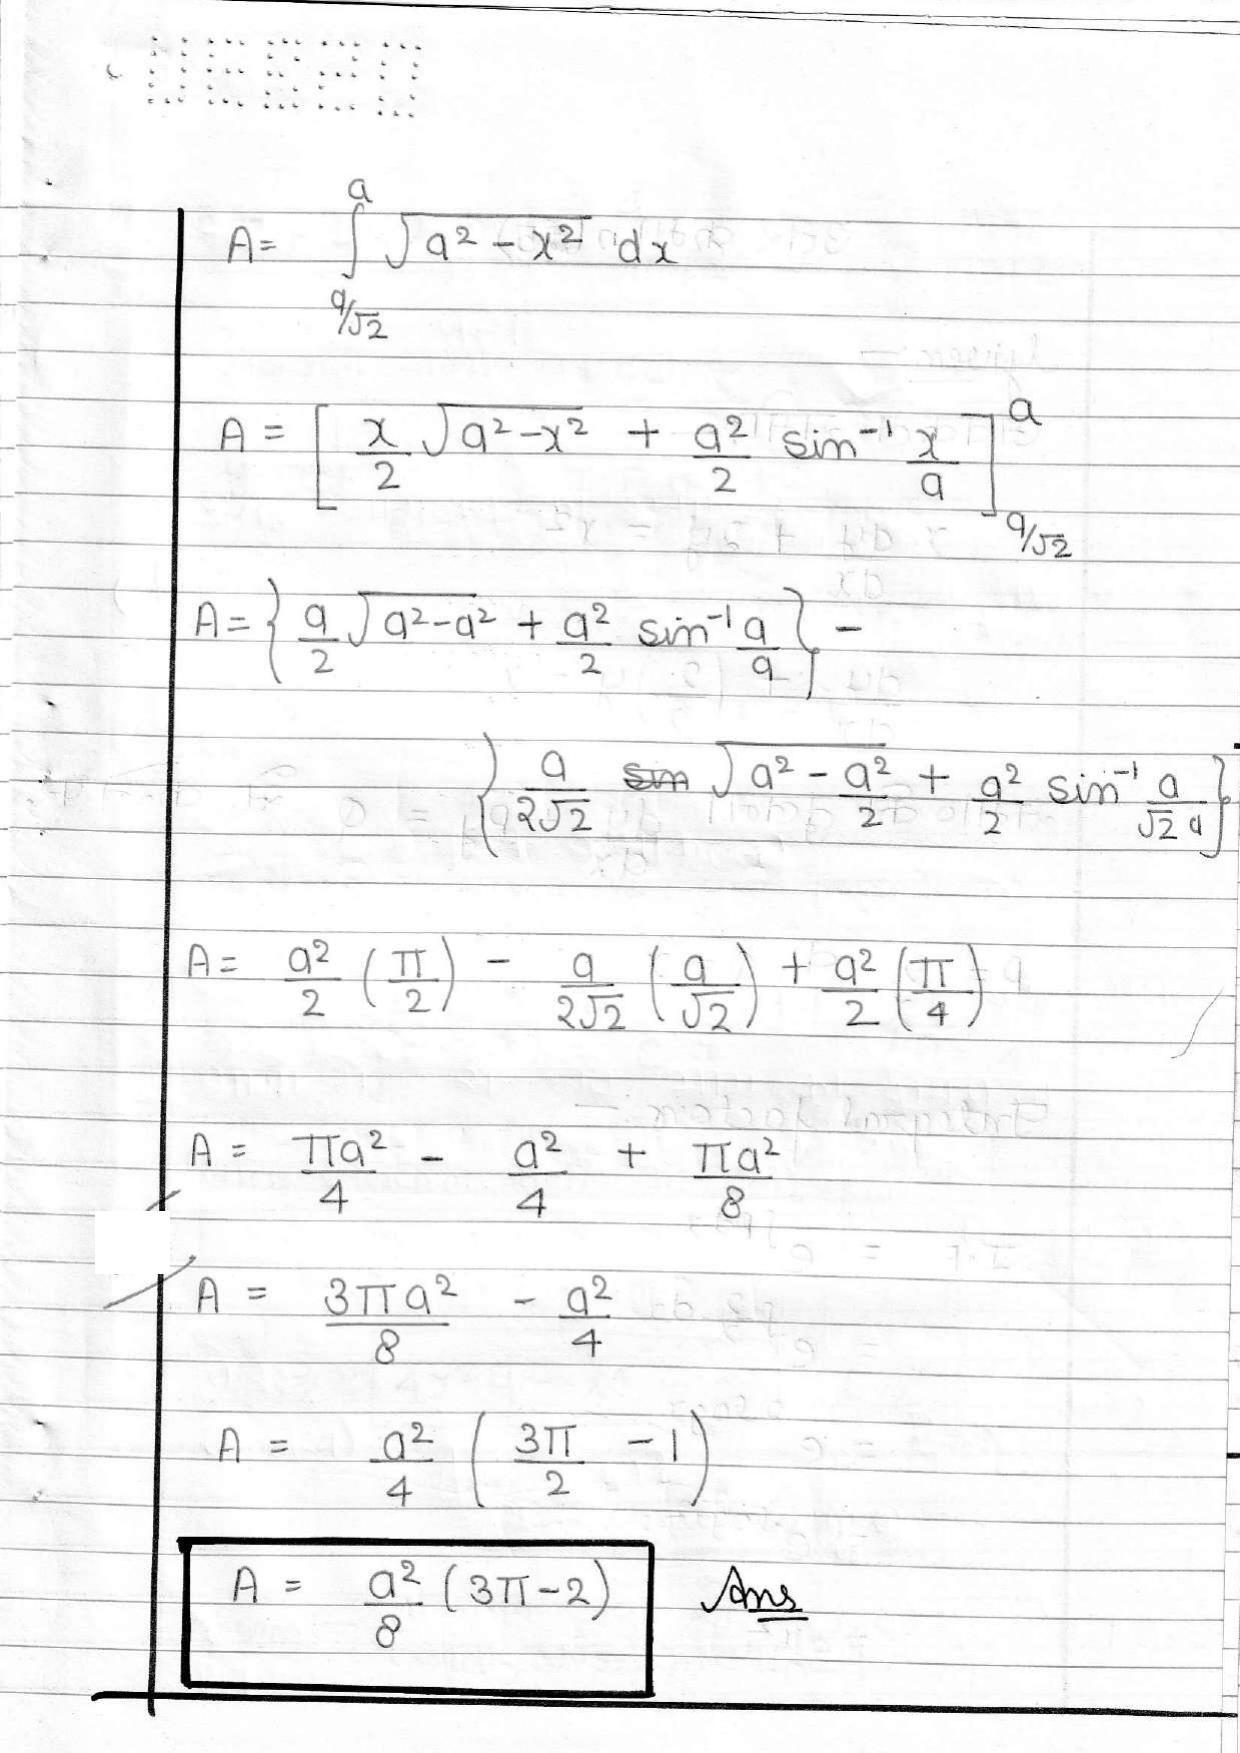 A = ∫_{a/√2}^{a} √(a² - x²) dx
A = [ x/2 √(a² - x²) + a²/2 sin⁻¹ x/a ]_{a/√2}^{a}
A = { a/2 √(a² - a²) + a²/2 sin⁻¹ a/a } -
{ a/2√2 √(a² - a²/2) + a²/2 sin⁻¹ a/√2 a }
A = a²/2 (π/2) - a/2√2 (a/√2) + a²/2 (π/4)
A = πa²/4 - a²/4 + πa²/8
A = 3πa²/8 - a²/4
A = a²/4 ( 3π/2 - 1 )
A = a²/8 (3π - 2) Ans